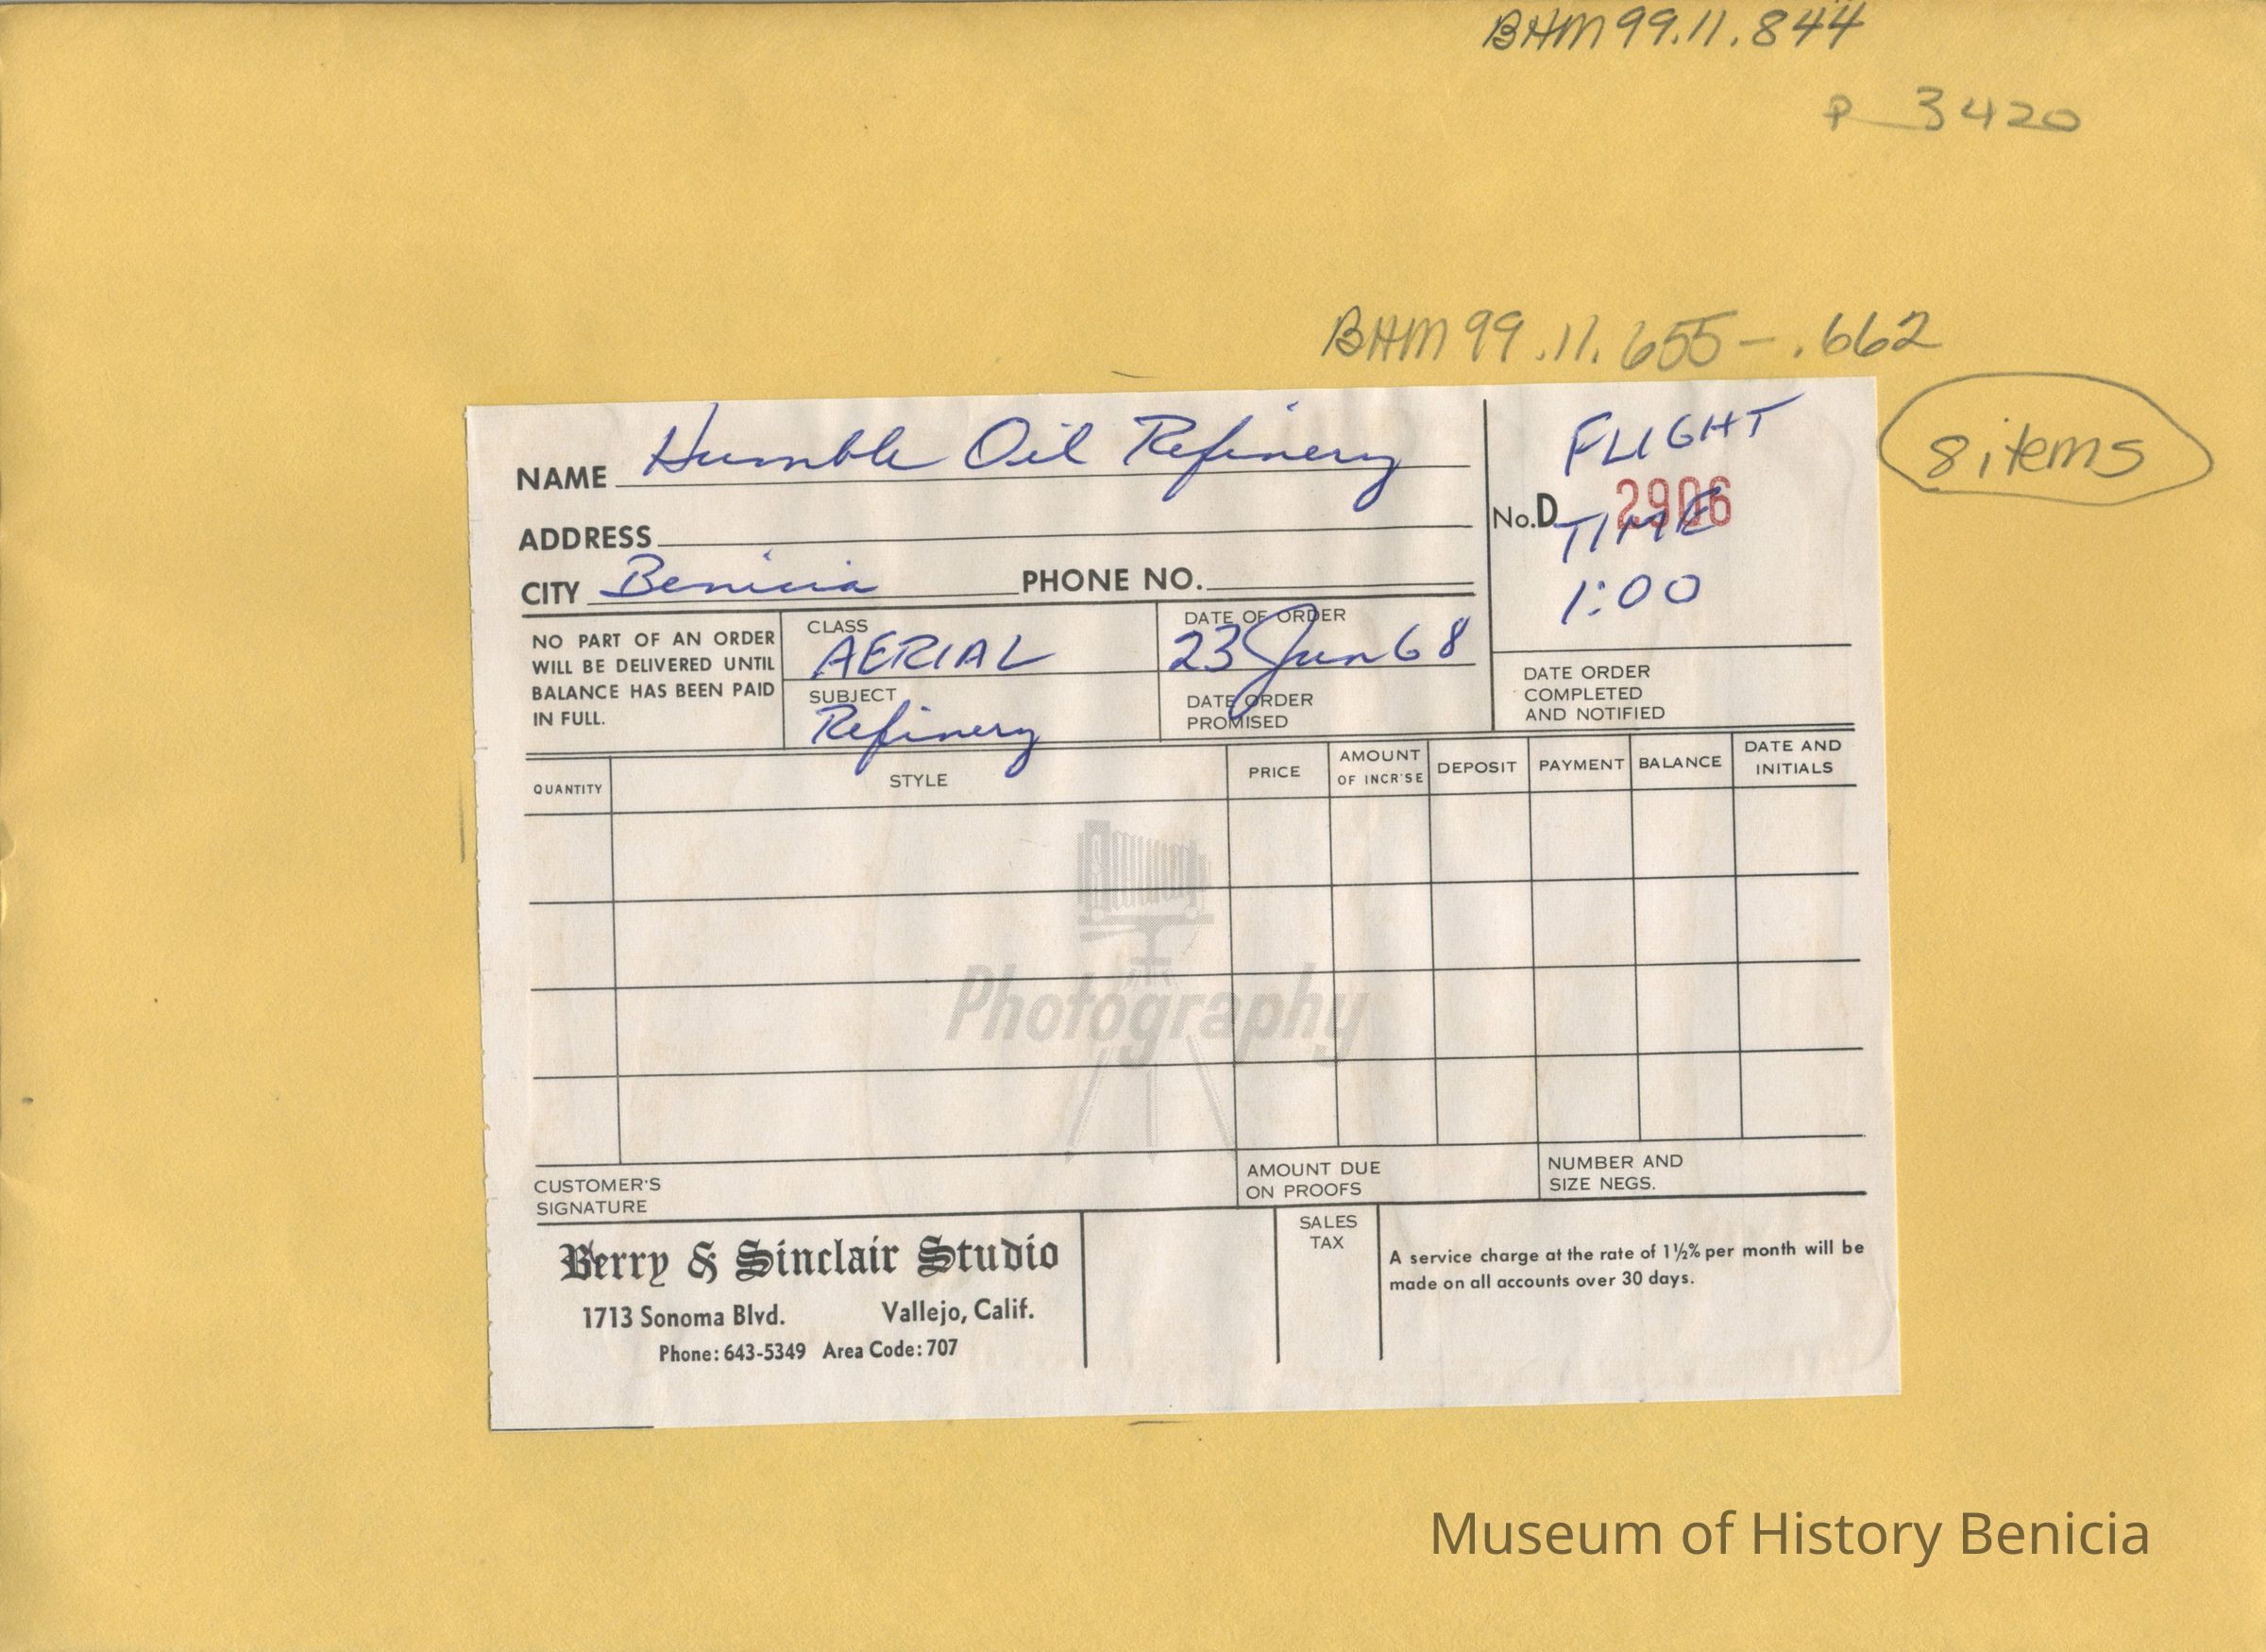 BHM 99.11.844
P 3420
BHM 99.11.655 - .662
8 items
NAME Humble Oil Refinery
ADDRESS
CITY Benicia PHONE NO.
FLIGHT
No. D 2906
TIME
1:00
NO PART OF AN ORDER
WILL BE DELIVERED UNTIL
BALANCE HAS BEEN PAID
IN FULL.
CLASS
AERIAL
SUBJECT
Refinery
DATE OF ORDER
23 Jun 68
DATE ORDER
PROMISED
DATE ORDER
COMPLETED
AND NOTIFIED
QUANTITY
STYLE
PRICE
AMOUNT
OF INCR'SE
DEPOSIT
PAYMENT
BALANCE
DATE AND
INITIALS
Photography
CUSTOMER'S
SIGNATURE
AMOUNT DUE
ON PROOFS
NUMBER AND
SIZE NEGS.
Berry & Sinclair Studio
1713 Sonoma Blvd. Vallejo, Calif.
Phone: 643-5349 Area Code: 707
SALES
TAX
A service charge at the rate of 1½% per month will be
made on all accounts over 30 days.
Museum of History Benicia